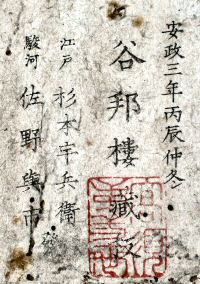 安政三年丙辰仲冬
谷邦樓藏板
江戸 杉本宇兵衛
駿河 佐野與市